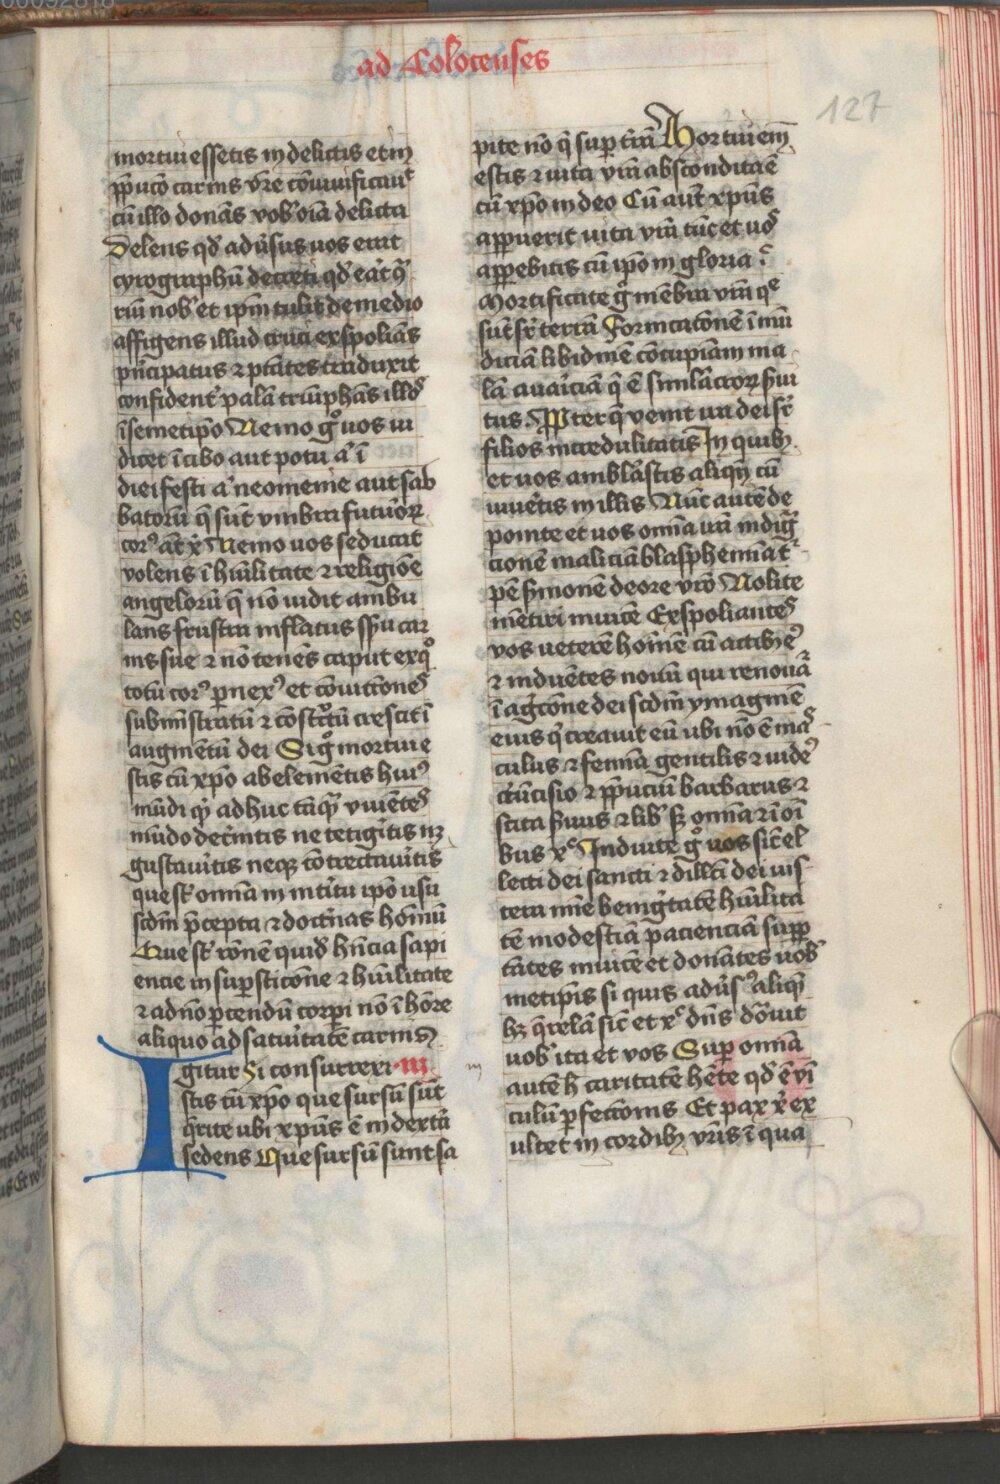 ad Colocenses
127
mortui essetis in delictis et in
ppucō carnis vr̄e cōuiuificauͭ
cū illo donās vob' oīa delicta
Delens qd' adūsus uos erat
cyrographū decreti qd' eāt q̄
riū nob' et ipm̄ tulit de medio
affigens illud cruci exspoliās
pͥncipatus ⁊ ptātes traduxit
confident' palā triūphās illoͬ
ī semetipō Nemo gͦ uos iu
dicet ī cibo aut potu aͭ ī
diei festi aͭ neomenie aut sab
batorū q̄ sūt vmbra futuroꝝ
corꝰ āt xͥ Nemo uos seducat
volens ī hūilitate ⁊ religiōe
angelorū q̄ nō uidit ambu
lans frustra inflatus sp̄u car
nis sue ⁊ nō tenēs caput ex qͦ
totū corꝰ p nexꝰ et cōiūctiones
subministratū ⁊ cōstͬctū crescit ī
augmentū dei Si gͦ mortui e
stis cū xp̄o ab elemētis huiꝰ
mūdi qͥ adhuc tāqͣ viuētes
mūdo decernitis ne tetigͥtis neqꝫ
gustauͥtis neqꝫ cōtrectauͥtis
que st̄ omnia in intͥtu ipō usu
scdm̄ p̄cepta ⁊ doctͥnas homīū
Que st̄ rōnē quid' hn̄cia sapi
encie in supersticōne ⁊ hūilitate
⁊ ad nō pͨcendū corpi nō ī hōre
aliquo ad saturͥtatē carnis
Igitur Si consurrexi · III
stis cū xp̄o que sursū sūt
qͥrite ubi xp̄us ē in dextͣ dī
sedens Que sursū sunt sa
pite nō q̄ sup tr̄ā Mortui eni
estis ⁊ uita vr̄a abscondita ē
cū xp̄o in deo Cū aūt xp̄us
appuerit uita vr̄a tūc et uos
appebitis cū ipō in gloria
Mortificate gͦ mēbra vr̄a qe
sūt sͬ terrā Fornicatōnē īmū
diciā libidinē cōcupiām ma
lā auaͥciā q̄ ē simlācroꝝ ẜui
tus Propter q̄ venit ira dei sͬ
filios incredulitatis In quibꝫ
et uos amblāstis aliqn̄ cū
uiuetis in illis Nūc autē de
ponite et uos omnia irā indigͣ
cionē maliciā blasphemiā tͬ
pē ẜmonē de ore vr̄o Nolite
mētiri inuicē Exspoliantes
vos ueterē hoīnē cū actibꝫ eꝰ
⁊ induētes nouū qui renouaͬ
ī agͨcōne dei scdm̄ ymaginē
eius qͥ creauit eū ubi nō ē mas
culus ⁊ femīa gentilis ⁊ iudeꝰ
cͥrcūcisio ⁊ ppuciū barbarus ⁊
scita ẜuus ⁊ lib' sꝫ omnia ⁊ ī oī
bus xͨ Induite gͦ uos sic el
lecti dei sancti ⁊ dillc̄i dei uis
cera mīe benigͥtatē hūilita
tē modestiā pacienciā supp
tātes inuicē et donātes uob'
metipīs si quis adūsꝰ aliqͣ
hꝫ qͥrelā sic̄ et xͨ dn̄s dōuit
uob' ita et vos Super omnia
autē h' caritatē hēte qd' ē vī
culū pfectionis Et pax xͥ ex
ultet in cordibꝫ vr̄is ī qua